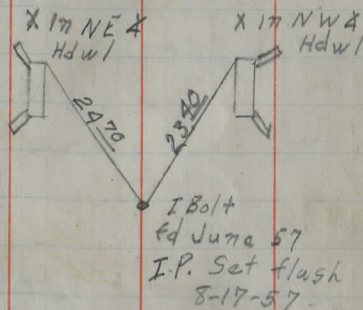 X in NE 4
Hdwl
X in NW 4
Hdwl
24 70
23 40
I Bolt
fd June 57
I.P. Set flush
8-17-57